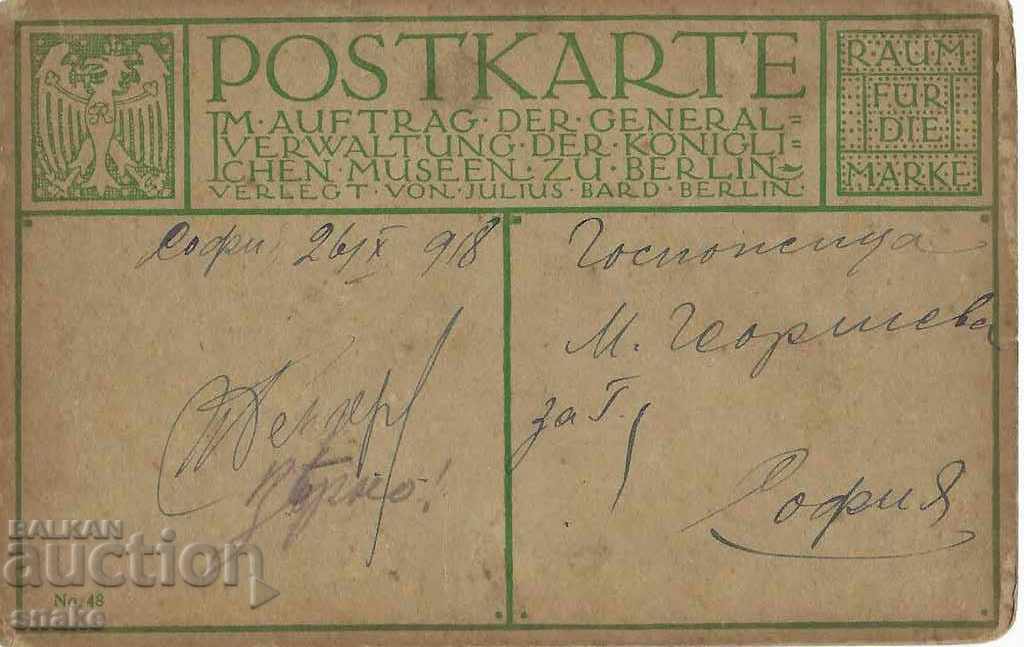 POSTKARTE
IM·AUFTRAG·DER·GENERAL=
VERWALTUNG·DER·KÖNIGLI=
CHEN·MUSEEN·ZU·BERLIN
VERLEGT·VON·JULIUS·BARD·BERLIN·
RAUM
FÜR
DIE
MARKE
Софи 26/X 918
Вѣрно!
Госпожица
М. Георгиева
за Г.
София
No. 48
BALKAN
auction
snake